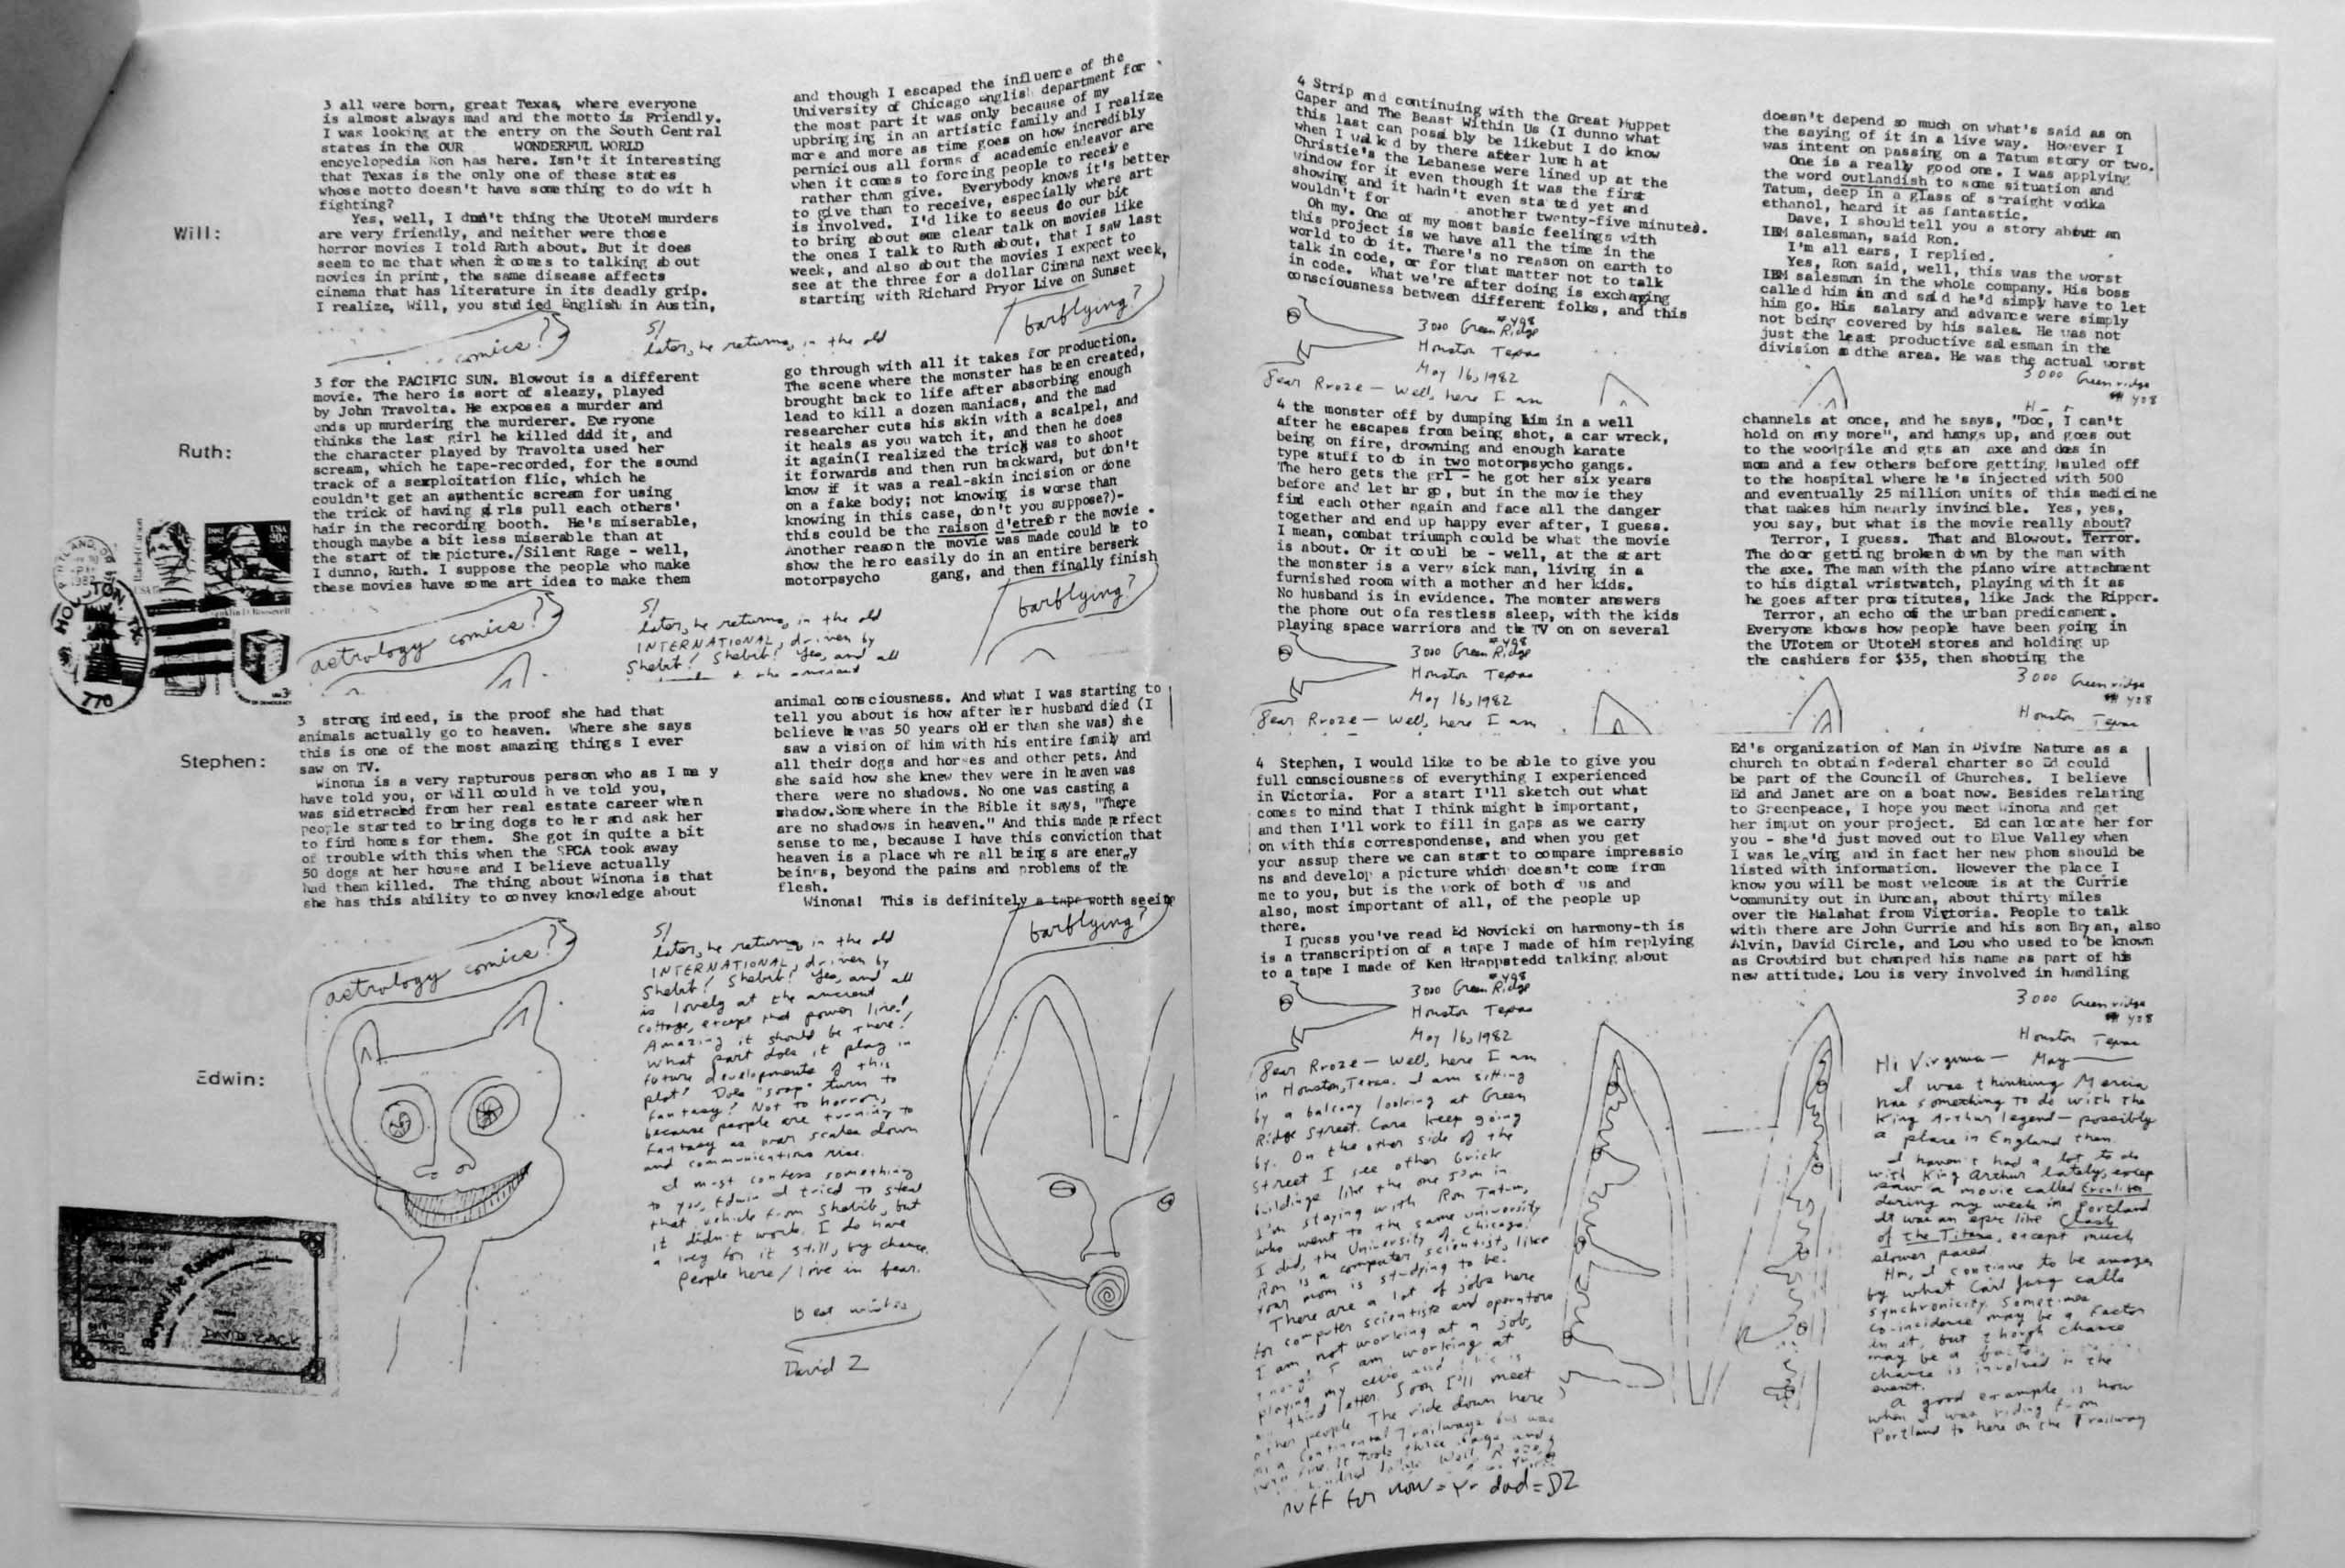 Will:
3 all were born, great Texas, where everyone
is almost always mad and the motto is Friendly.
I was looking at the entry on the South Central
states in the OUR WONDERFUL WORLD
encyclopedia Ron has here. Isn't it interesting
that Texas is the only one of these states
whose motto doesn't have some thing to do wit h
fighting?
Yes, well, I don't thing the UtoteM murders
are very friendly, and neither were those
horror movies I told Ruth about. But it does
seem to me that when it comes to talking about
movies in print, the same disease affects
cinema that has literature in its deadly grip.
I realize, Will, you studied English in Austin,
and though I escaped the influence of the
University of Chicago English department for
the most part it was only because of my
upbringing in an artistic family and I realize
more and more as time goes on how incredibly
pernicious all forms of academic endeavor are
when it comes to forcing people to receive
rather than give. Everybody knows it's better
to give than to receive, especially where art
is involved. I'd like to seeus do our bit
to bring about some clear talk on movies like
the ones I talk to Ruth about, that I saw last
week, and also about the movies I expect to
see at the three for a dollar Cinema next week,
starting with Richard Pryor Live on Sunset
comics?
5/
later, he returns, in the old
barflying?
Ruth:
3 for the PACIFIC SUN. Blowout is a different
movie. The hero is sort of sleazy, played
by John Travolta. He exposes a murder and
ends up murdering the murderer. Everyone
thinks the last girl he killed did it, and
the character played by Travolta used her
scream, which he tape-recorded, for the sound
track of a sexploitation flic, which he
couldn't get an authentic scream for using
the trick of having girls pull each others'
hair in the recording booth. He's miserable,
though maybe a bit less miserable than at
the start of the picture./Silent Rage - well,
I dunno, Ruth. I suppose the people who make
these movies have some art idea to make them
go through with all it takes for production.
The scene where the monster has been created,
brought back to life after absorbing enough
lead to kill a dozen maniacs, and the mad
researcher cuts his skin with a scalpel, and
it heals as you watch it, and then he does
it again(I realized the trick was to shoot
it forwards and then run backward, but don't
know if it was a real-skin incision or done
on a fake body; not knowing is worse than
knowing in this case, don't you suppose?)-
this could be the raison d'etrefor the movie.
Another reason the movie was made could be to
show the hero easily do in an entire berserk
motorpsycho gang, and then finally finish
astrology comics?
5/
later, he returns, in the old
INTERNATIONAL, driven by
Shebit! Shebit! Yes, and all
barflying?
HOUSTON, TX
770
USA
20c
Stephen:
3 strong indeed, is the proof she had that
animals actually go to heaven. Where she says
this is one of the most amazing things I ever
saw on TV.
Winona is a very rapturous person who as I ma y
have told you, or Will could h ve told you,
was sidetracked from her real estate career when
people started to bring dogs to her and ask her
to find homes for them. She got in quite a bit
of trouble with this when the SPCA took away
50 dogs at her house and I believe actually
had them killed. The thing about Winona is that
she has this ability to convey knowledge about
animal consciousness. And what I was starting to
tell you about is how after her husband died (I
believe he was 50 years older than she was) she
saw a vision of him with his entire family and
all their dogs and horses and other pets. And
she said how she knew they were in heaven was
there were no shadows. No one was casting a
shadow.Somewhere in the Bible it says, "There
are no shadows in heaven." And this made perfect
sense to me, because I have this conviction that
heaven is a place wh re all beings are energy
beings, beyond the pains and problems of the
flesh.
Winona! This is definitely a tape worth seeing
Edwin:
astrology comics?
5/
later, he returns, in the old
INTERNATIONAL, driven by
Shebit! Shebit! Yes, and all
is lovely at the ancient
cottage, except that power line!
Amazing it should be there!
What part does it play in
future developments of this
plot? Does "soap" turn to
fantasy? Not to horror,
because people are turning to
fantasy as wars scales down
and communications rise.
I must confess something
to you, Edwin I tried to steal
that vehicle from Shebib, but
it didn't work. I do have
a key for it still, by chance.
People here / love in fear.
Best wishes
David Z
barflying?
Beyond the Rainbow
DAVID ZACK
4 Strip and continuing with the Great Muppet
Caper and The Beast Within Us (I dunno what
this last can possibly be likebut I do know
when I walked by there after lunch at
Christie's the Lebanese were lined up at the
window for it even though it was the first
showing and it hadn't even started yet and
wouldn't for another twenty-five minutes).
Oh my. One of my most basic feelings with
this project is we have all the time in the
world to do it. There's no reason on earth to
talk in code, or for that matter not to talk
in code. What we're after doing is exchanging
consciousness between different folks, and this
doesn't depend so much on what's said as on
the saying of it in a live way. However I
was intent on passing on a Tatum story or two.
One is a really good one. I was applying
the word outlandish to some situation and
Tatum, deep in a glass of straight vodka
ethanol, heard it as fantastic.
Dave, I should tell you a story about an
IBM salesman, said Ron.
I'm all ears, I replied.
Yes, Ron said, well, this was the worst
IBM salesman in the whole company. His boss
called him in and said he'd simply have to let
him go. His salary and advance were simply
not being covered by his sales. He was not
just the least productive salesman in the
division and the area. He was the actual worst
3000 Green Ridge #408
Houston Texas
May 16, 1982
Dear Rroze — Well, here I am
3000 Greenridge
#408
4 the monster off by dumping him in a well
after he escapes from being shot, a car wreck,
being on fire, drowning and enough karate
type stuff to do in two motorpsycho gangs.
The hero gets the grl - he got her six years
before and let her go, but in the movie they
find each other again and face all the danger
together and end up happy ever after, I guess.
I mean, combat triumph could be what the movie
is about. Or it could be - well, at the start
the monster is a very sick man, living in a
furnished room with a mother and her kids.
No husband is in evidence. The monster answers
the phone out ofa restless sleep, with the kids
playing space warriors and the TV on on several
channels at once, and he says, "Doc, I can't
hold on any more", and hangs up, and goes out
to the woodpile and gts an axe and does in
mom and a few others before getting hauled off
to the hospital where he's injected with 500
and eventually 25 million units of this medicine
that makes him nearly invincible. Yes, yes,
you say, but what is the movie really about?
Terror, I guess. That and Blowout. Terror.
The door getting broken down by the man with
the axe. The man with the piano wire attachment
to his digtal wristwatch, playing with it as
he goes after prostitutes, like Jack the Ripper.
Terror, an echo of the urban predicament.
Everyone knows how people have been going in
the UTotem or UtoteM stores and holding up
the cashiers for $35, then shooting the
3000 Green Ridge #408
Houston Texas
May 16, 1982
Dear Rroze — Well, here I am
3000 Greenridge
#408
Houston Texas
4 Stephen, I would like to be able to give you
full consciousness of everything I experienced
in Victoria. For a start I'll sketch out what
comes to mind that I think might b important,
and then I'll work to fill in gaps as we carry
on with this correspondense, and when you get
your assup there we can start to compare impressio
ns and develop a picture which doesn't come from
me to you, but is the work of both of us and
also, most important of all, of the people up
there.
I guess you've read Ed Novicki on harmony-th is
is a transcription of a tape I made of him replying
to a tape I made of Ken Hrappstedd talking about
Ed's organization of Man in Divine Nature as a
church to obtain federal charter so Ed could
be part of the Council of Churches. I believe
Ed and Janet are on a boat now. Besides relating
to Greenpeace, I hope you meet Winona and get
her imput on your project. Ed can locate her for
you - she'd just moved out to Blue Valley when
I was leaving and in fact her new phon should be
listed with information. However the place I
know you will be most velcome is at the Currie
Community out in Duncan, about thirty miles
over the Malahat from Victoria. People to talk
with there are John Currie and his son Bryan, also
Alvin, David Circle, and Lou who used to be known
as Crowbird but changed his name as part of his
new attitude. Lou is very involved in handling
3000 Green Ridge #408
Houston Texas
May 16, 1982
Dear Rroze — Well, here I am
in Houston, Texas. I am sitting
by a balcony looking at Green
Ridge Street. Cars keep going
by. On the other side of the
street I see other brick
buildings like the one I'm in.
I'm staying with Ron Tatum,
who went to the same university
I did, the University of Chicago.
Ron is a computer scientist, like
your mom is studying to be.
There are a lot of jobs here
for computer scientists and operators
I am not working at a job,
though I am working at
playing my cello and this is
third letter. Soon I'll meet
other people The ride down here
on a Continental Trailways bus was
nuff for now = Yr dad = DZ
3000 Greenridge
#408
Houston Texas
May
Hi Virginia —
I was thinking Mercia
has something to do with the
King Arthur legend — possibly
a place in England then.
I haven't had a lot to do
with King Arthur lately, except
saw a movie called Excalibur
during my week in Portland
It was an epic like Clash
of the Titans, except much
slower paced.
Hm, I continue to be amazed
by what Carl Jung calls
synchronicity. Sometimes
co-incidence may be a factor
in it, but though chance
may be a
chance is involved in the
event.
A good example is how
when I was riding from
Portland to here on the Trailway